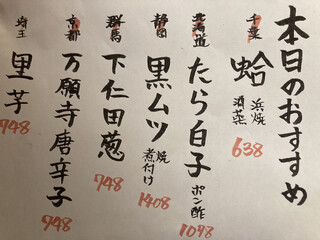 本日のおすすめ
千葉 蛤 浜焼 酒蒸 638
北海道 たら白子 ポン酢 1048
静岡 黒ムツ 焼 煮付け 1408
群馬 下仁田葱 748
京都 万願寺唐辛子 748
埼玉 里芋 748